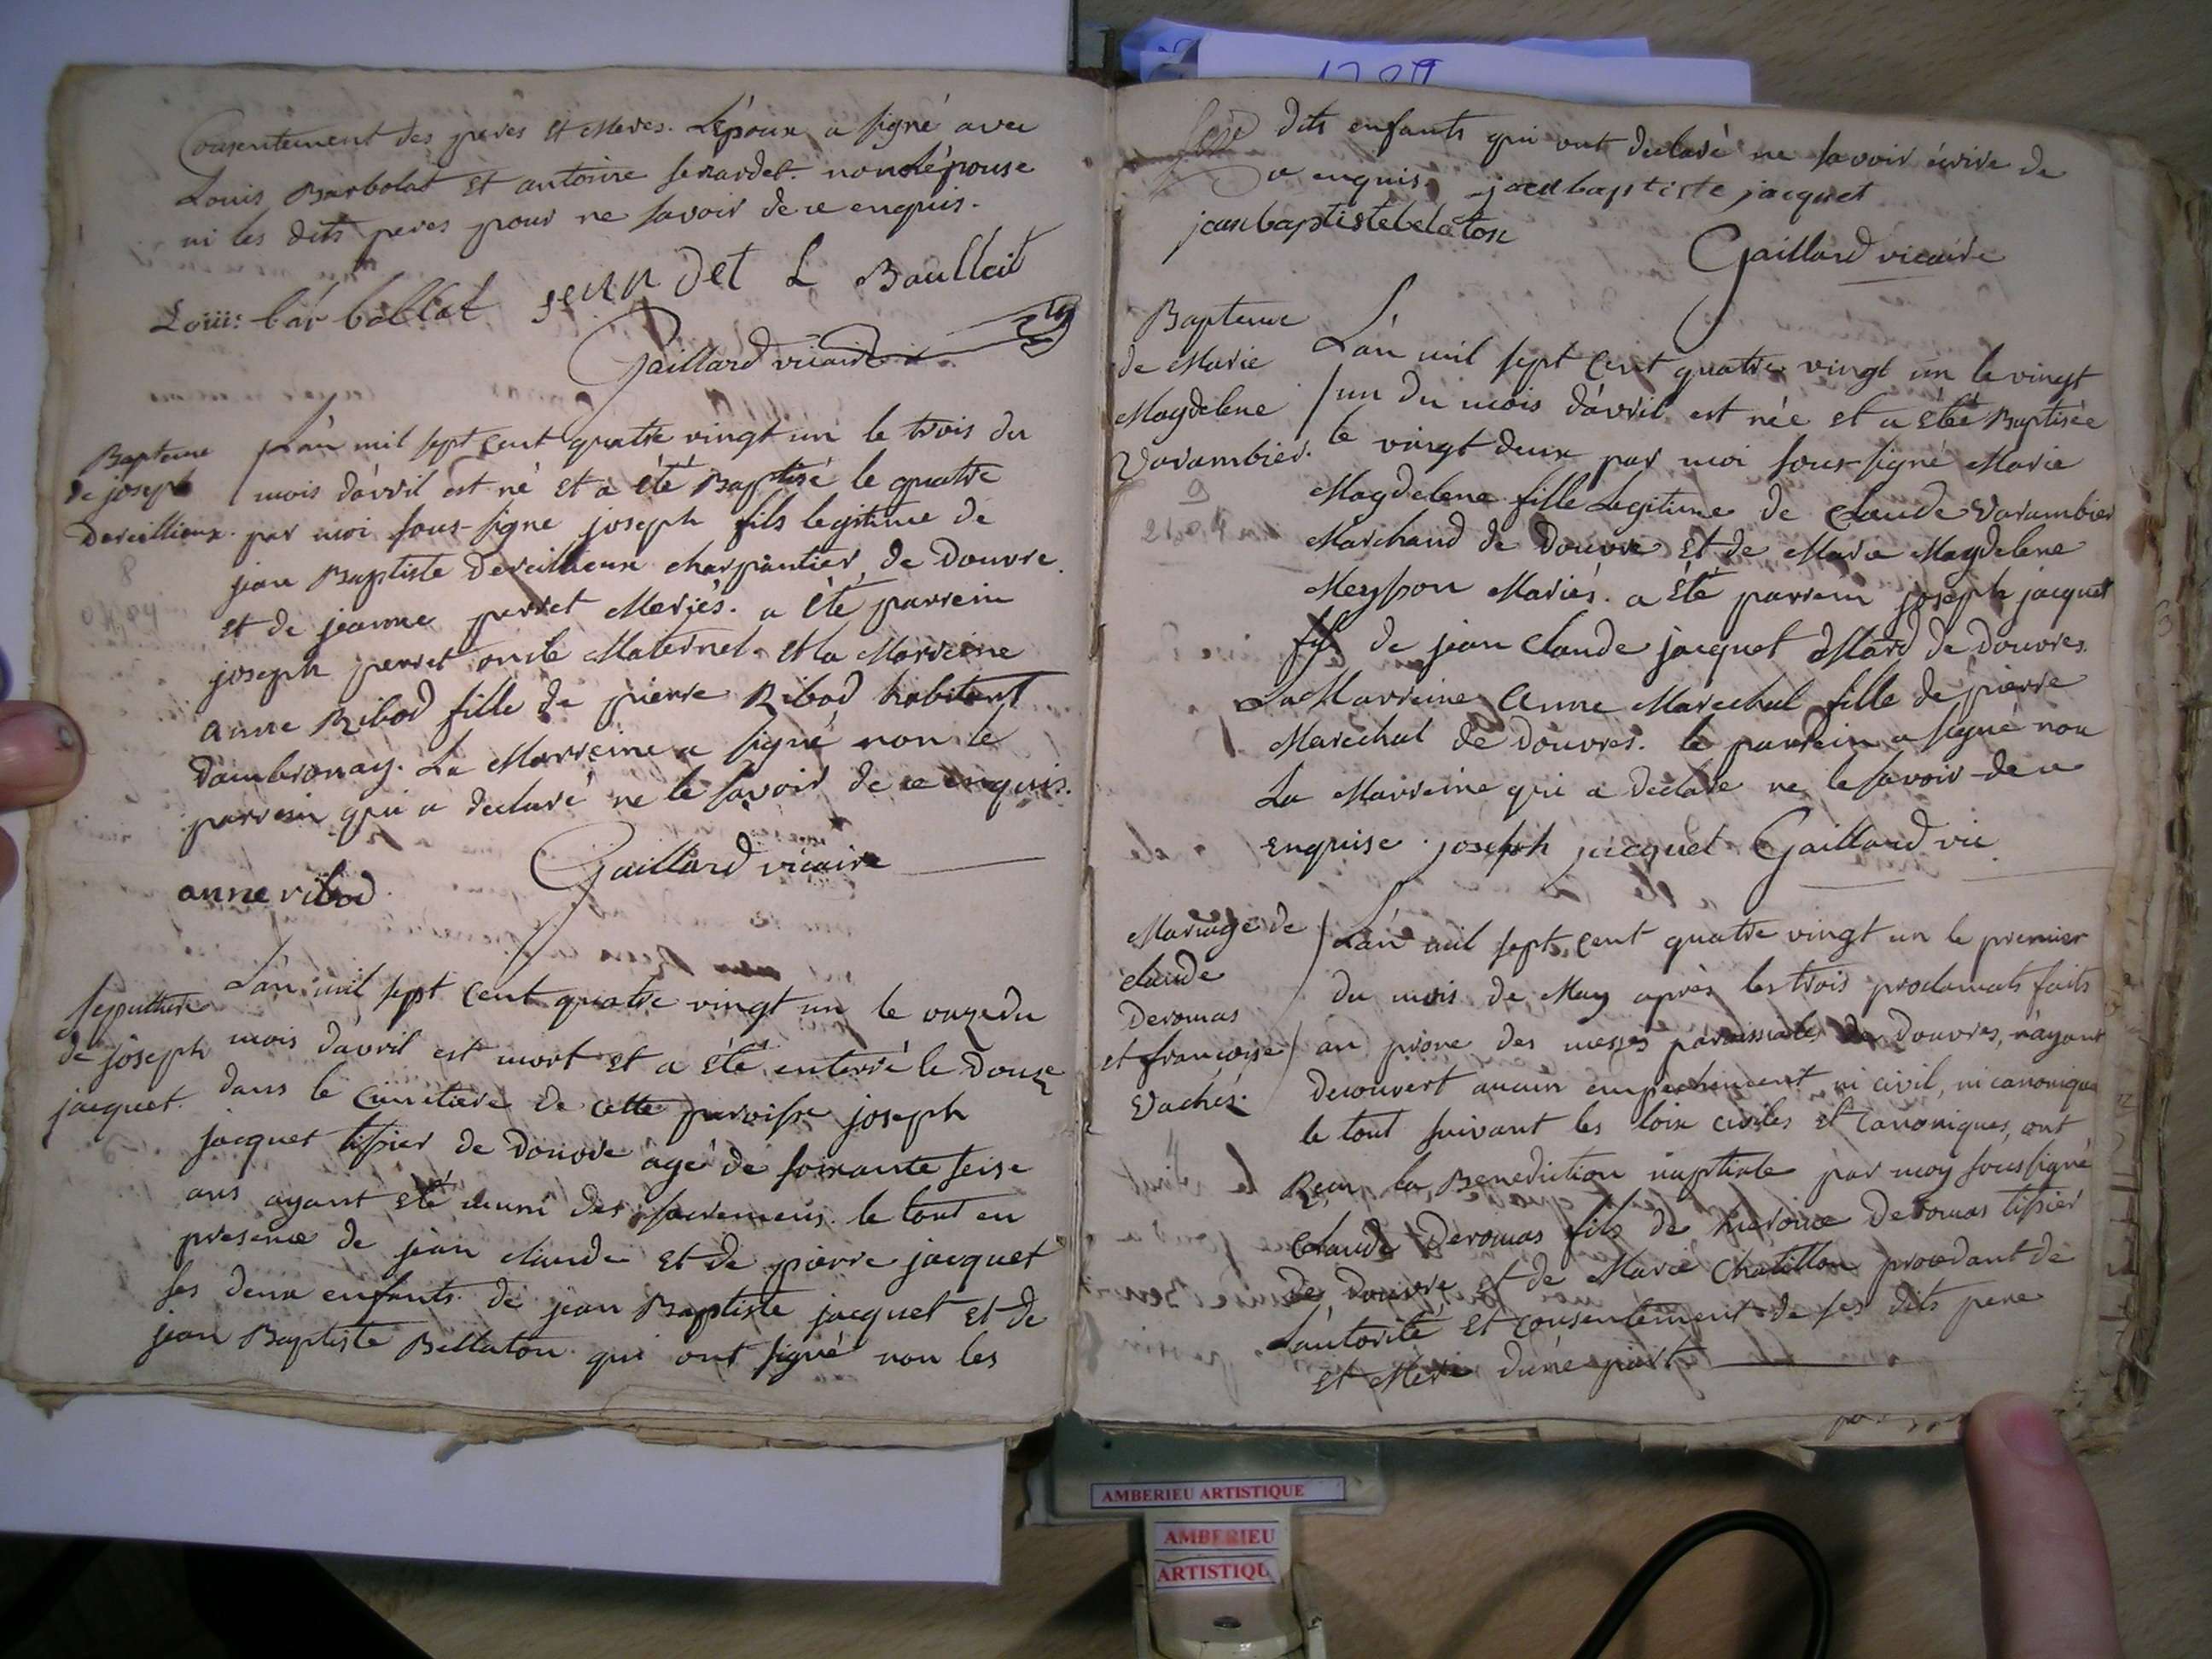 Consentement des peres et Meres. L'époux a signé avec
Louis Barbolat et antoine senardet. non L'épouse
ni les dits peres pour ne savoir de ce enquis.
Louis barbollat L Baulleit
Gaillard vicaire
Bapteme
de joseph
Dereillieux.
L'an mil sept cent quatre vingt un le trois du
mois d'avril est né et a été Baptisé le quatre
par moi sous-signé joseph fils legitime de
jean Baptiste Dereillieux charpantier de Douvre
et de jeanne perret Mariés. a été parrein
joseph perret oncle Maternel. et la Marreine
anne Ribod fille de pierre Ribod habitant
d'ambronay. La Marreine a signé non le
parrein qui a declaré ne le savoir de ce enquis.
Gaillard vicaire
anne ribod
sepulture
de joseph
jacquet.
L'an mil sept cent quatre vingt un le onze du
mois d'avril est mort et a été enterré le douze
dans le cimetiere de cette paroisse joseph
jacquet tissier de Douvre agé de soixante seise
ans ayant été muni des sacremens. le tout en
presence de jean claude et de pierre jacquet
ses deux enfants. de jean Baptiste jacquet et de
jean Baptiste Bellaton qui ont signé non les
dits enfants qui ont declaré ne savoir écrire de
ce enquis. jean baptiste jacquet
jean baptiste belaton
Gaillard vicaire
Bapteme
de Marie
Magdelene
Varambier.
9
L'an mil sept cent quatre vingt un le vingt
un du mois d'avril est née et a été Baptisée
le vingt deux par moi sous-signé Marie
Magdelene fille Legitime de Claude Varambier
Marchand de Douvre et de Marie Magdelene
Meysson Mariés. a été parrein joseph jacquet
fils de jean Claude jacquet Mard de Douvres.
La Marreine Anne Marechal fille de pierre
Marechal de Douvres. le parrein a signé non
La Marreine qui a declaré ne le savoir de ce
Enquise. joseph jacquet Gaillard vic
Mariage de
claude
Deromas
et françoise
Vachés.
L'an mil sept cent quatre vingt un le premier
du mois de May après les trois proclamats faits
au prone des messes paroissiales de Douvres, n'ayant
decouvert aucun empechement ni civil, ni canonique
le tout suivant les loix civiles et canoniques, ont
Reçu la Benediction nuptiale par moy soussigné
Claude Deromas fils de hierome Deromas tissier
de Douvre et de Marie Chatillon procedant de
L'autorité et consentement de ses dits pere
et Mere d'une part
AMBERIEU ARTISTIQUE
AMBERIEU
ARTISTIQU